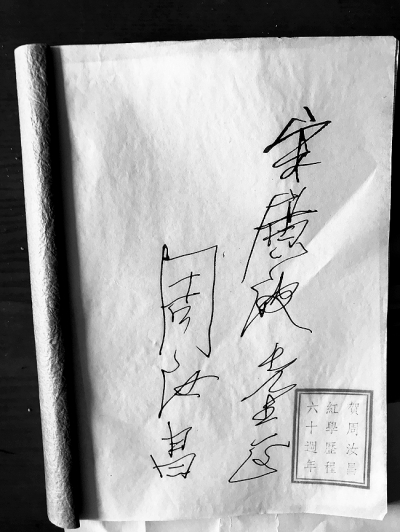 宋廣波先生
周汝昌
賀周汝昌
紅學歷程
六十週年